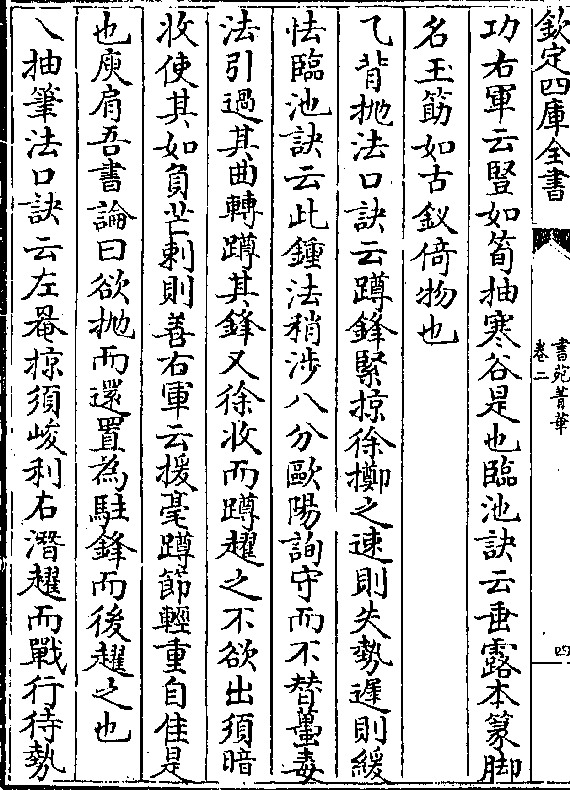 欽定四庫全書
書苑菁華
卷二
四
功右軍云豎如筍抽寒谷是也臨池訣云垂露本篆脚
名玉筯如古釵倚物也
乁背抛法口訣云蹲鋒緊掠徐擲之速則失勢遲則緩
怯臨池訣云此鍾法稍涉八分歐陽詢守而不替蠆毒
法引過其曲轉蹲其鋒又徐收而蹲趯之不欲出須暗
收使其如負芒刺則善右軍云援毫蹲節輕重自佳是
也庾肩吾書論曰欲抛而還置為駐鋒而後趯之也
乀抽筆法口訣云左罨掠須峻利右潛趯而戰行待勢